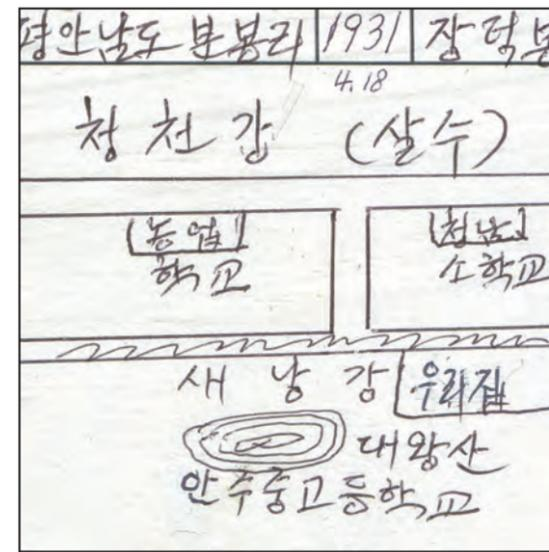 평안남도 분봉리 1931 장덕분
4.18
청천강 (살수)
농업 청남
학교 소학교
새낭강 우리집
대왕산
안주중고등학교